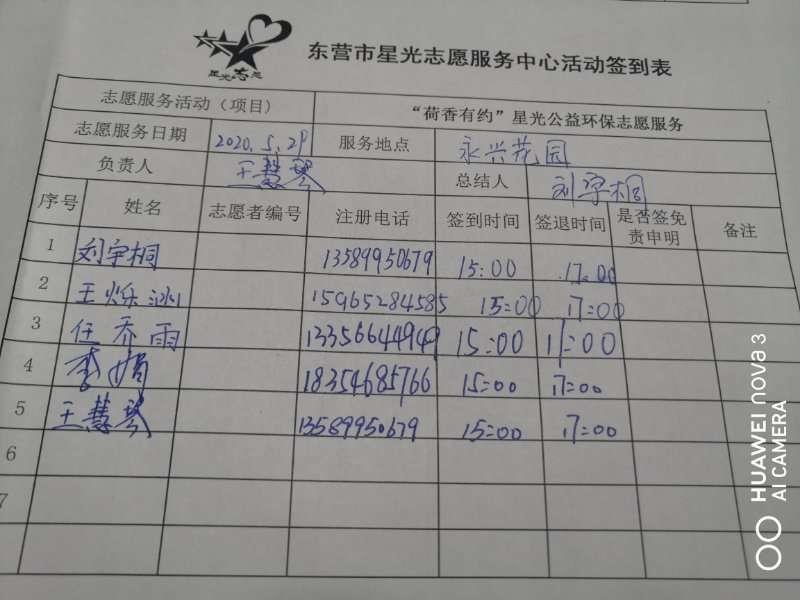 星光志愿
东营市星光志愿服务中心活动签到表
志愿服务活动（项目） “荷香有约”星光公益环保志愿服务
志愿服务日期 2020.5.29 服务地点 永兴花园
负责人 王慧琴 总结人 刘宇桐
序号 姓名 志愿者编号 注册电话 签到时间 签退时间 是否签免责申明 备注
1 刘宇桐 13589950679 15:00 17:00
2 王烁冰 15965284585 15:00 17:00
3 任乔雨 13356644949 15:00 17:00
4 李娟 18354685766 15:00 17:00
5 王慧琴 13589950679 15:00 17:00
6
7
HUAWEI nova 3
AI CAMERA